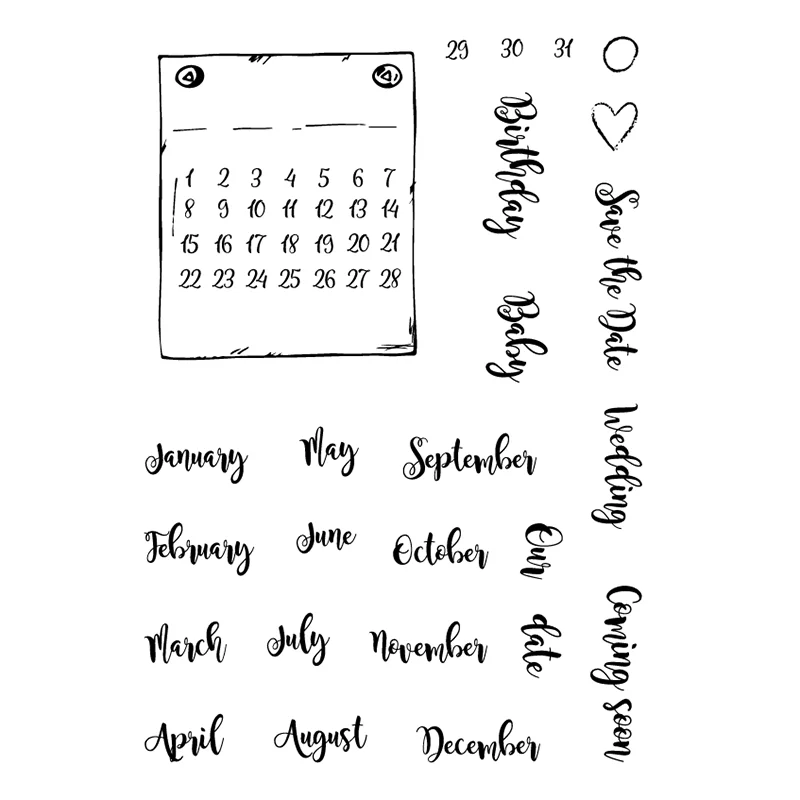 29 30 31
1 2 3 4 5 6 7
8 9 10 11 12 13 14
15 16 17 18 19 20 21
22 23 24 25 26 27 28
Birthday
Save the Date
Baby
Wedding
January May September
February June October
Our date
Coming soon
March July November
April August December